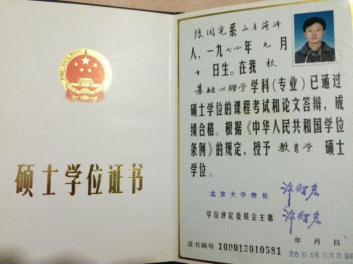 硕士学位证书
张国宪系山东菏泽
人,一九七四年九月
十日生。在我校
基础心理学学科(专业)已通过
硕士学位的课程考试和论文答辩,成
绩合格。根据《中华人民共和国学位
条例》的规定,授予教育学硕士
学位。
北京大学校长
学位评定委员会主席
证书编号
年月日